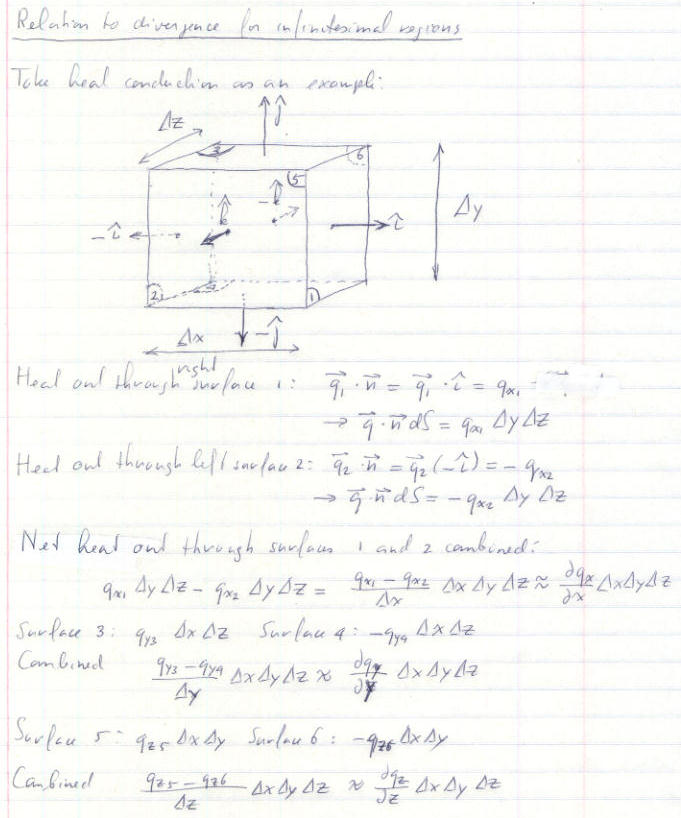 Relation to divergence for infinitesimal regions
Take heat conduction as an example:
Δz
ĵ
3
6
5
-k̂
k̂
-î
î
Δy
2
4
1
Δx
-ĵ
Heat out through right surface 1: q⃗₁ · n⃗ = q⃗₁ · î = qₓ₁
→ q⃗ · n⃗ dS = qₓ₁ Δy Δz
Heat out through left surface 2: q⃗₂ · n⃗ = q⃗₂(-î) = - qₓ₂
→ q⃗ · n⃗ dS = -qₓ₂ Δy Δz
Net heat out through surfaces 1 and 2 combined:
qₓ₁ Δy Δz - qₓ₂ Δy Δz = (qₓ₁ - qₓ₂)/Δx Δx Δy Δz ≈ ∂qₓ/∂x Δx Δy Δz
Surface 3: q_y3 Δx Δz Surface 4: -q_y4 Δx Δz
Combined (q_y3 - q_y4)/Δy Δx Δy Δz ≈ ∂q_y/∂y Δx Δy Δz
Surface 5: q_z5 Δx Δy Surface 6: -q_z6 Δx Δy
Combined (q_z5 - q_z6)/Δz Δx Δy Δz ≈ ∂q_z/∂z Δx Δy Δz